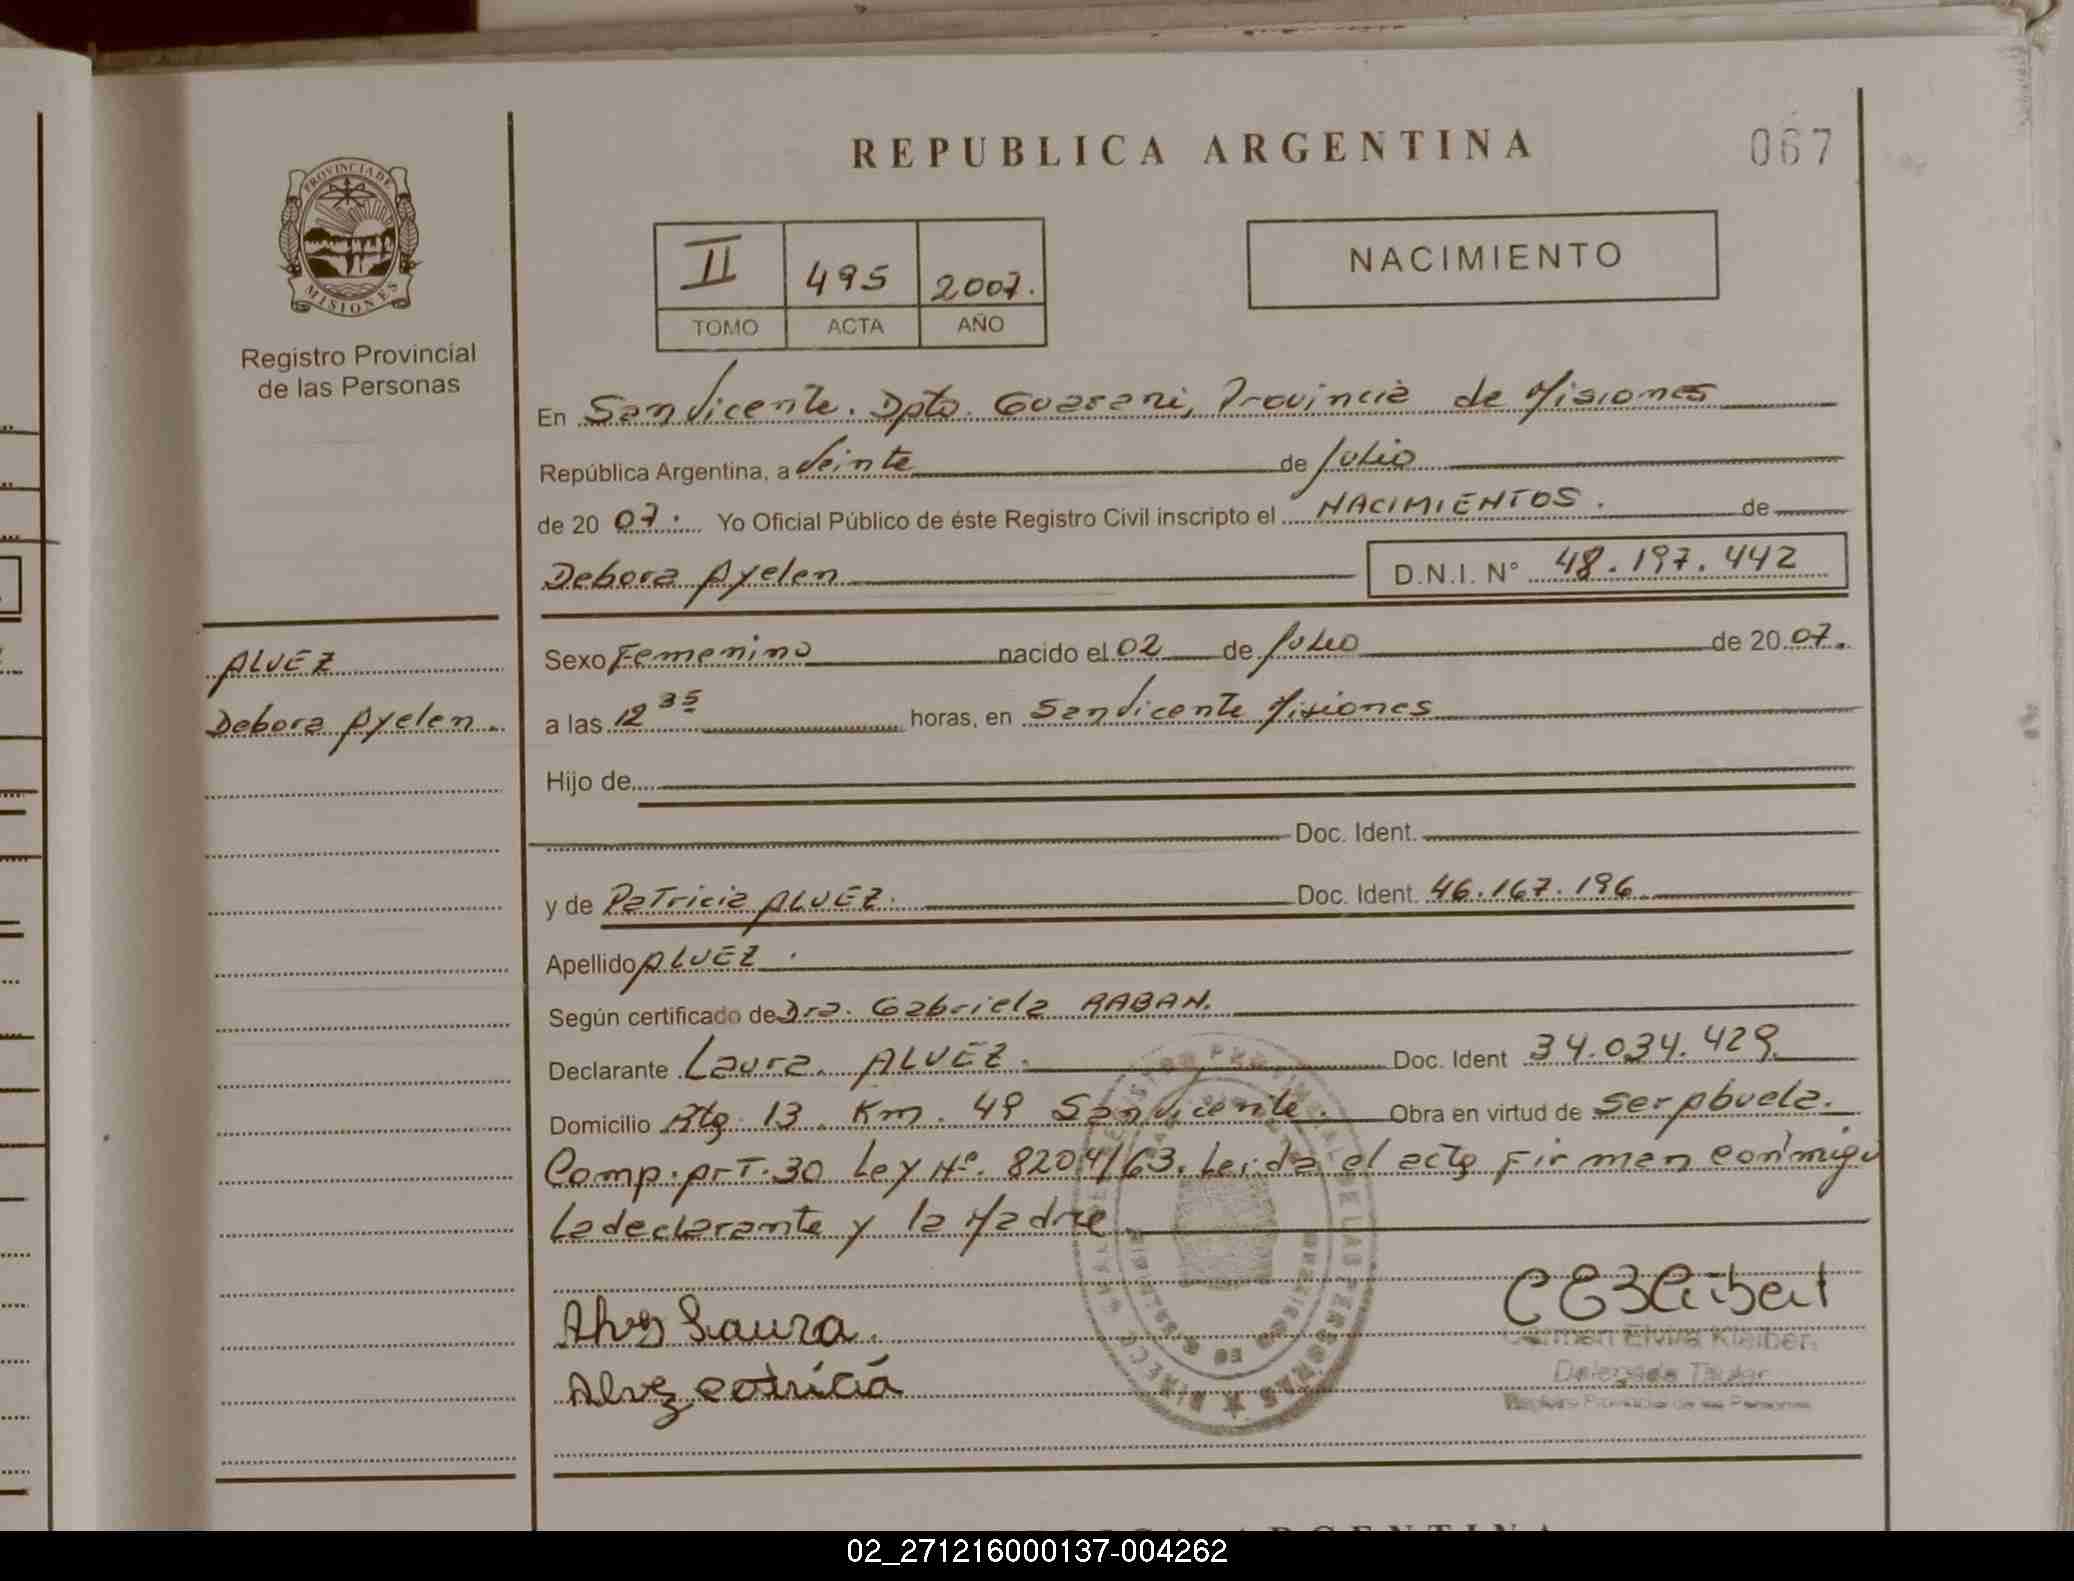 REPUBLICA ARGENTINA
067
PROVINCIA DE
MISIONES
Registro Provincial
de las Personas
II 495 2007.
TOMO ACTA AÑO
NACIMIENTO
En San Vicente. Dpto. Guarani, Provincia de Misiones
República Argentina, a Veinte de Julio
de 20 07. Yo Oficial Público de éste Registro Civil inscripto el NACIMIENTOS. de
Debora Ayelen D.N.I. N° 48.197.442
ALVEZ
Debora Ayelen.
Sexo Femenino nacido el 02 de Julio de 20 07.
a las 12 35 horas, en San Vicente Misiones
Hijo de
Doc. Ident.
y de Patricia ALVEZ. Doc. Ident. 46.167.196
Apellido ALVEZ.
Según certificado de Dra. Gabriela RABAN.
Declarante Laura ALVEZ. Doc. Ident 34.034.429.
Domicilio Rta 13 Km. 49 San Vicente. Obra en virtud de ser Abuela.
Comp. Art. 30 Ley Nº. 8204/63. Leida el acta Firman conmigo
La declarante y la Madre
Alvez Laura.
Alvez Patricia
Carmen Elvira Kleiber
Delegada Titular
Registro Provincial de las Personas
02_271216000137-004262